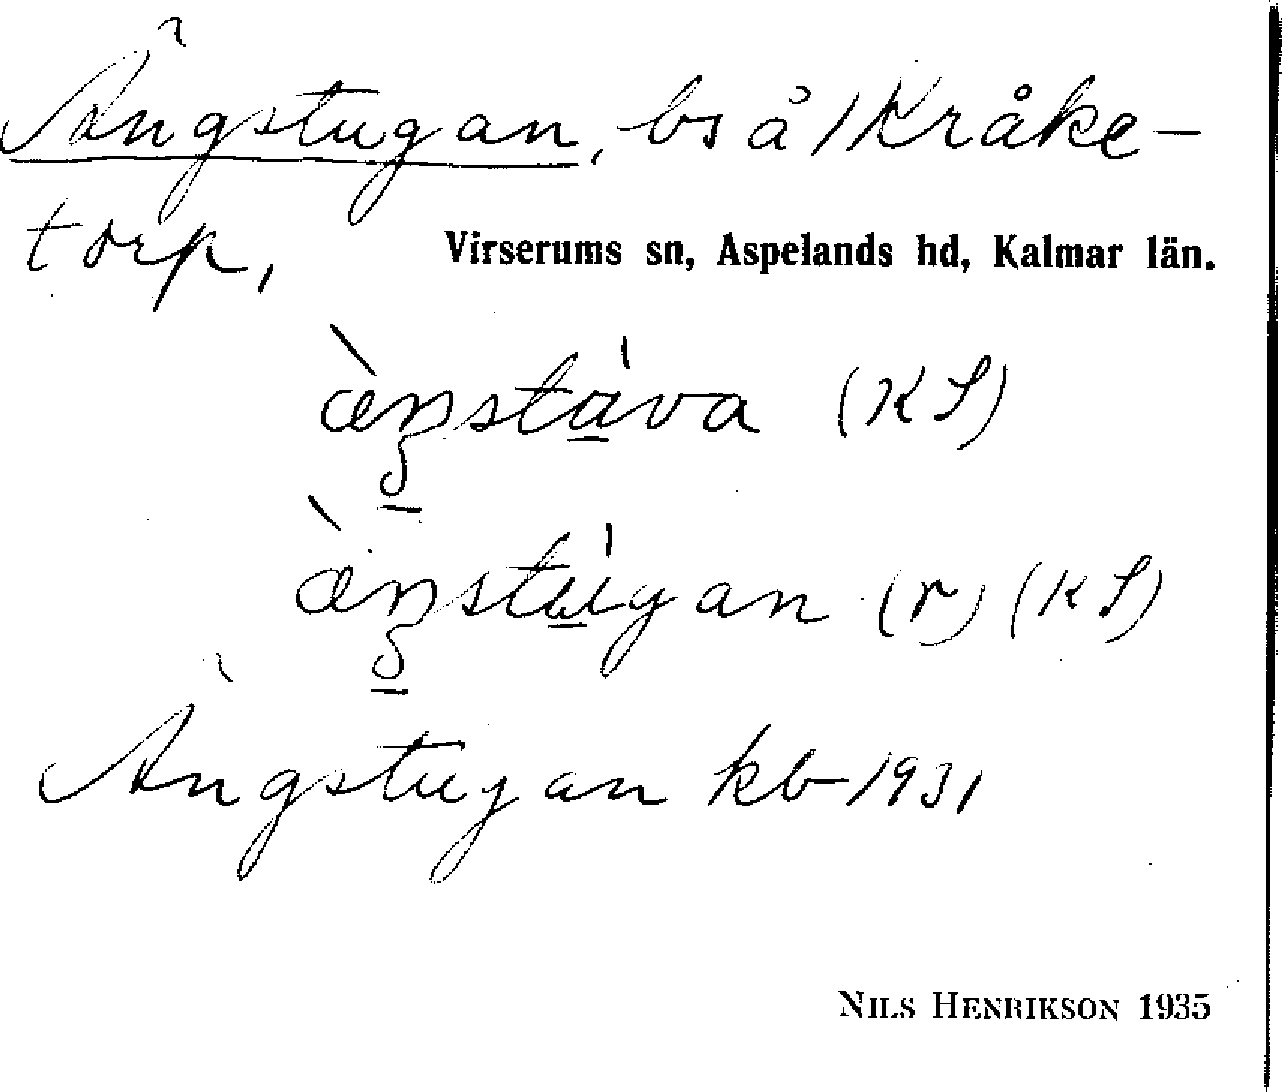 Ängstugan, bs å /Kråke-
torp, Virserums sn, Aspelands hd, Kalmar län.
æ̀ŋsta̲̍va (KS)
æ̀ŋstu̲̍gan (r) (KS)
Ängstugan kb 1931
NILS HENRIKSON 1935